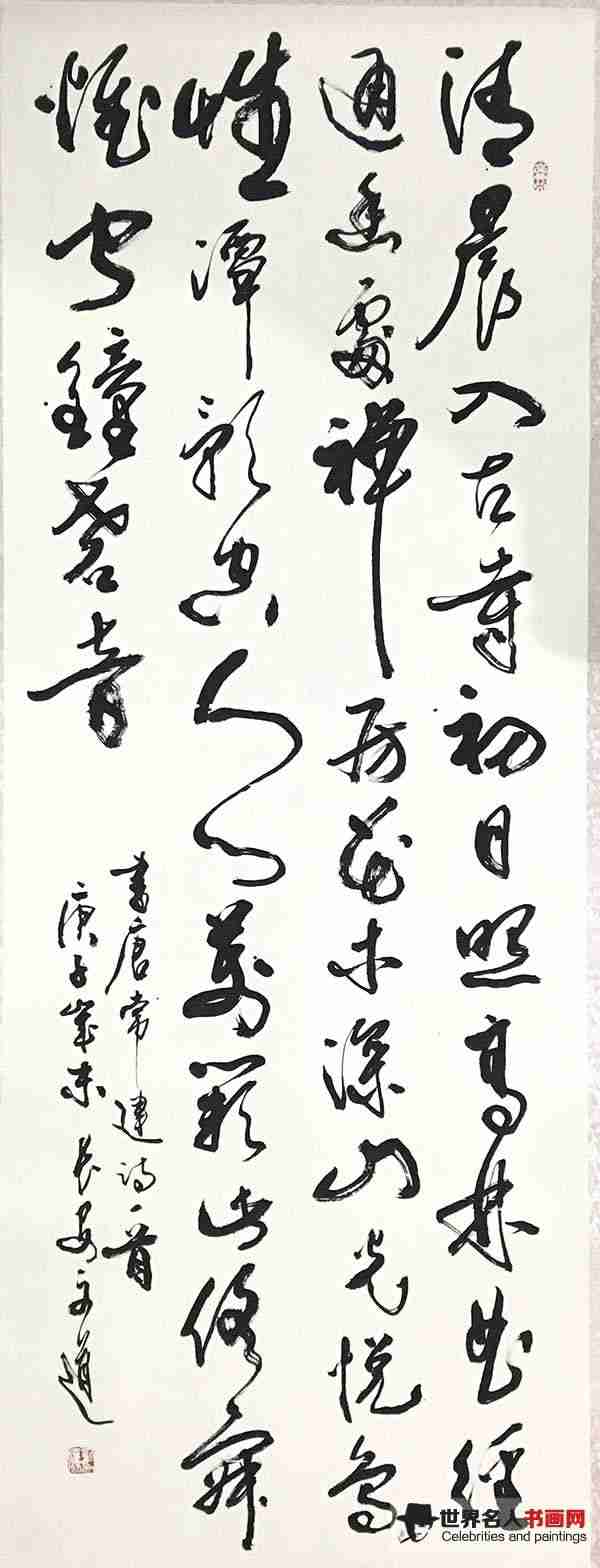 清晨入古寺初日照高林曲徑
通幽處禪房花木深山光悦鳥
性潭影空人心萬籟此俱寂
惟聞鐘磬音
書唐常建詩一首
庚子歲末長安文道
世界名人书画网
Celebrities and paintings